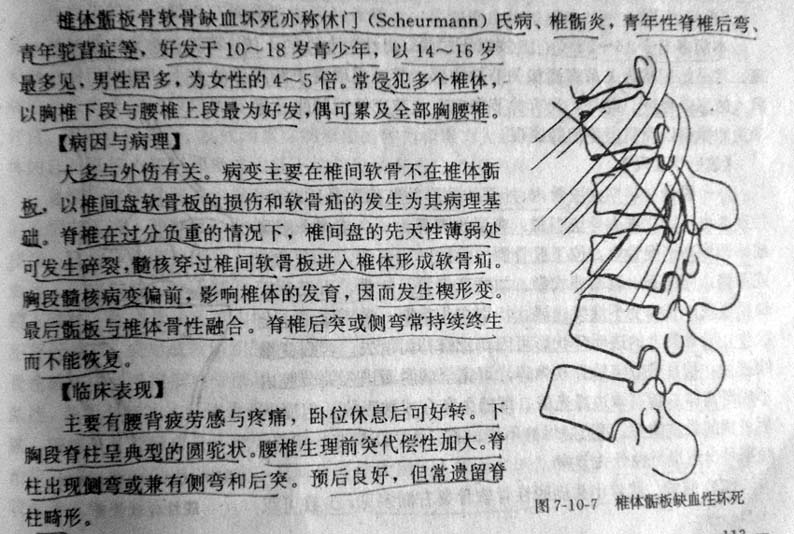 椎体骺板骨软骨缺血坏死亦称休门（Scheurmann）氏病、椎骺炎，青年性脊椎后弯、
青年驼背症等，好发于10～18岁青少年，以14～16岁
最多见，男性居多，为女性的4～5倍。常侵犯多个椎体，
以胸椎下段与腰椎上段最为好发，偶可累及全部胸腰椎。
【病因与病理】
大多与外伤有关。病变主要在椎间软骨不在椎体骺
板，以椎间盘软骨板的损伤和软骨疝的发生为其病理基
础。脊椎在过分负重的情况下，椎间盘的先天性薄弱处
可发生碎裂，髓核穿过椎间软骨板进入椎体形成软骨疝。
胸段髓核病变偏前，影响椎体的发育，因而发生楔形变。
最后骺板与椎体骨性融合。脊椎后突或侧弯常持续终生
而不能恢复。
【临床表现】
主要有腰背疲劳感与疼痛，卧位休息后可好转。下
胸段脊柱呈典型的圆驼状。腰椎生理前突代偿性加大。脊
柱出现侧弯或兼有侧弯和后突。预后良好，但常遗留脊
柱畸形。
图7-10-7 椎体骺板缺血性坏死